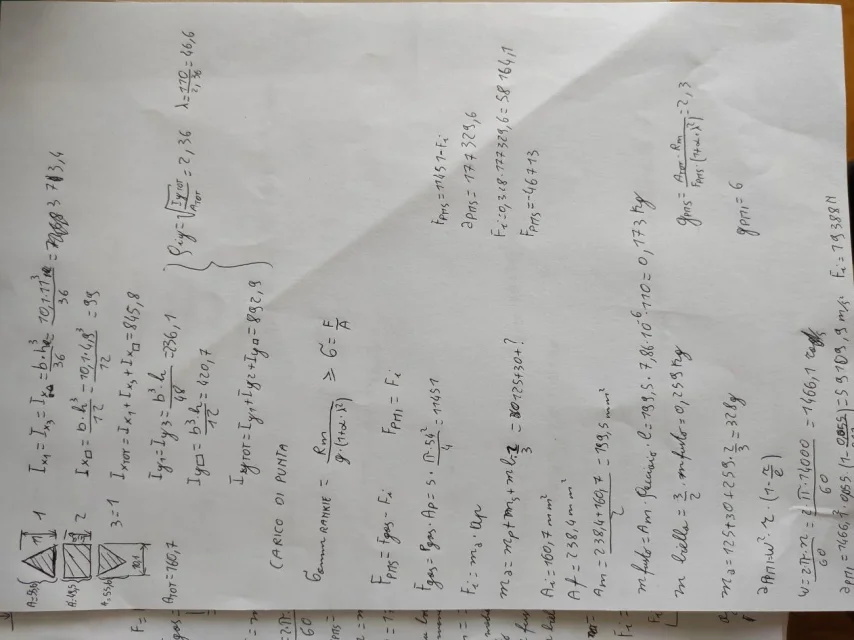 A=55,6 11 1
A=49,5 4,9 2
A=55,6 3=1
10,1
Atot=160,7
Ix1 = Ix3 = b·h³/36 = 10,1·11³/36 = 373,4
Ix□ = b·h³/12 = 10,1·4,9³/12 = 99
Ixtot = Ix1 + Ix3 + Ix□ = 845,8
Iy1 = Iy3 = b³·h/48 = 236,1
Iy□ = b³h/12 = 420,7
Iytot = Iy1 + Iy2 + Iy□ = 892,9
ρiy = √Iytot/Atot = 2,36 λ = 110/2,36 = 46,6
CARICO DI PUNTA
σamm RANKINE = Rm/g·(1+α·λ²) ≥ σ = F/A
FPMS = Fgas - Fi FPMI = Fi
Fgas = Pgas·Ap = 5·π·54²/4 = 11451
FPMS = 11451 - Fi
Fi = ma·ap
aPMS = 177329,6
ma = mp + ms + mb·2/3 = 125+30+?
Fi = 0,328·177329,6 = 58164,1
Ai = 160,7 mm²
FPMS = -46713
Af = 238,4 mm²
Am = 238,4+160,7/2 = 199,5 mm²
m fusto = Am·ρacciaio·l = 199,5·7,86·10⁻⁶·110 = 0,173 Kg
m biella = 3/2·m fusto = 0,259 Kg
gPMS = Atot·Rm/FPMS·(1+α·λ²) = 2,3
ma = 125+30+259·2/3 = 328g
gPMI = 6
aPMI = ω²·r·(1-r/l)
ω = 2π·n/60 = 2·π·14000/60 = 1466,1
Fi = 19388N